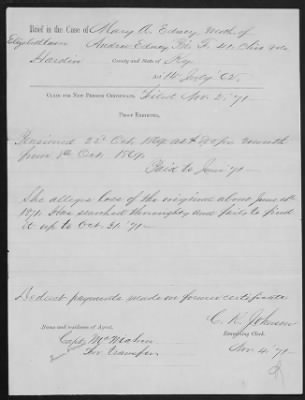 Brief in the Case of Mary A. Edney Moth. of
Elizabethtown Andrew Edney Pri. F. 41. Ohio Vols
Hardin County and State of Ky.
Claim for New Pension Certificate. Filed Nov. 2, '71
Proof Exhibited.
Pensioned 22d Oct. 1869 at $8.00 per month
from 1st Oct. 1869.
Paid to June '71
She alleges loss of the original about June 10th
1871. Has searched thoroughly and fails to find
it up to Oct. 21, '71
Deduct payments made on former certificate
C. K. Johnson
Name and residence of Agent. Examining Clerk.
Capt. Nov. 4, '71
for transfer